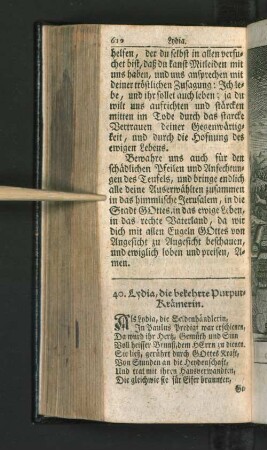 619 Lydia.
helfen, der du selbst in allen versu-
chet bist, daß du kanst Mitleiden mit
uns haben, und uns ansprechen mit
deiner tröstlichen Zusagung: Ich le-
be, und ihr sollet auch leben; ja du
wilt uns aufrichten und stärcken
mitten im Tode durch das starcke
Vertrauen deiner Gegenwärtig-
keit, und durch die Hofnung des
ewigen Lebens.
Bewahre uns auch für den
schädlichen Pfeilen und Anfechtun-
gen des Teufels, und bringe endlich
alle deine Auserwählten zusammen
in das himmlische Jerusalem, in die
Stadt GOttes, in das ewige Leben,
in das rechte Vaterland, da wir
dich mit allen Engeln GOttes von
Angesicht zu Angesicht beschauen,
und ewiglich loben und preisen, A-
men.
40. Lydia, die bekehrte Purpur-
Krämerin.
Als Lydia, die Seidenhändlerin,
In Paulus Predigt war erschienen,
Da ward ihr Hertz, Gemüth und Sinn
Voll heisser Brunst, dem HErrn zu dienen.
Sie ließ, gerührt durch GOttes Kraft,
Von Stunden an die Heydenschaft,
Und trat mit ihren Hausverwandten,
Die gleichwie sie für Eifer brannten,